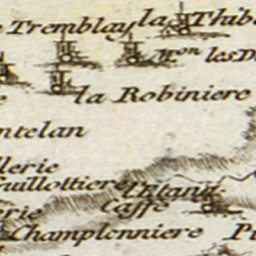 Tremblay la Thib
les D
la Robiniere
ntelan
llerie
uillottiere l'Etang
erie Caffé
Champlonniere P